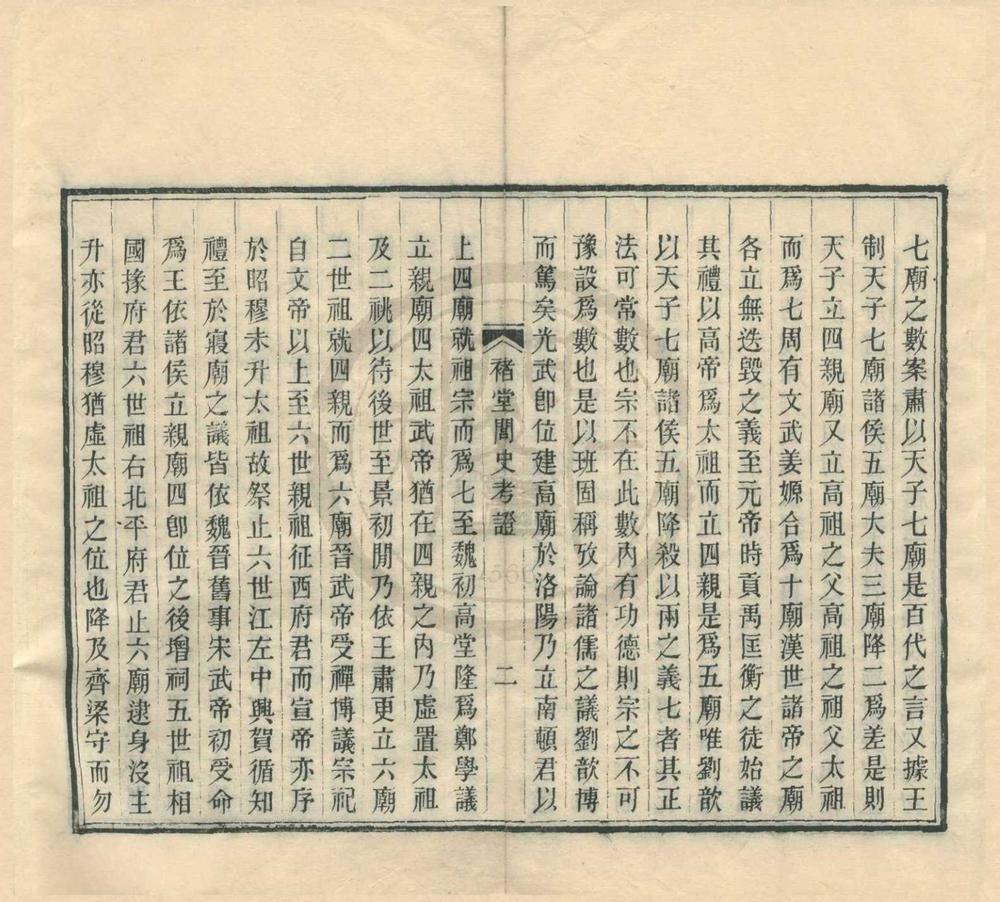 七廟之數案肅以天子七廟是百代之言又據王
制天子七廟諸侯五廟大夫三廟降二爲差是則
天子立四親廟又立高祖之父高祖之祖父太祖
而爲七周有文武姜嫄合爲十廟漢世諸帝之廟
各立無迭毀之義至元帝時貢禹匡衡之徒始議
其禮以高帝爲太祖而立四親是爲五廟唯劉歆
以天子七廟諸侯五廟降殺以兩之義七者其正
法可常數也宗不在此數內有功德則宗之不可
豫設爲數也是以班固稱攷論諸儒之議劉歆博
而篤矣光武卽位建高廟於洛陽乃立南頓君以
褚堂閒史考證
二
上四廟就祖宗而爲七至魏初高堂隆爲鄭學議
立親廟四太祖武帝猶在四親之內乃虛置太祖
及二祧以待後世至景初閒乃依王肅更立六廟
二世祖就四親而爲六廟晉武帝受禪博議宗祀
自文帝以上至六世親祖征西府君而宣帝亦序
於昭穆未升太祖故祭止六世江左中興賀循知
禮至於寢廟之議皆依魏晉舊事宋武帝初受命
爲王依諸侯立親廟四卽位之後增祠五世祖相
國掾府君六世祖右北平府君止六廟逮身沒主
升亦從昭穆猶虛太祖之位也降及齊梁守而勿